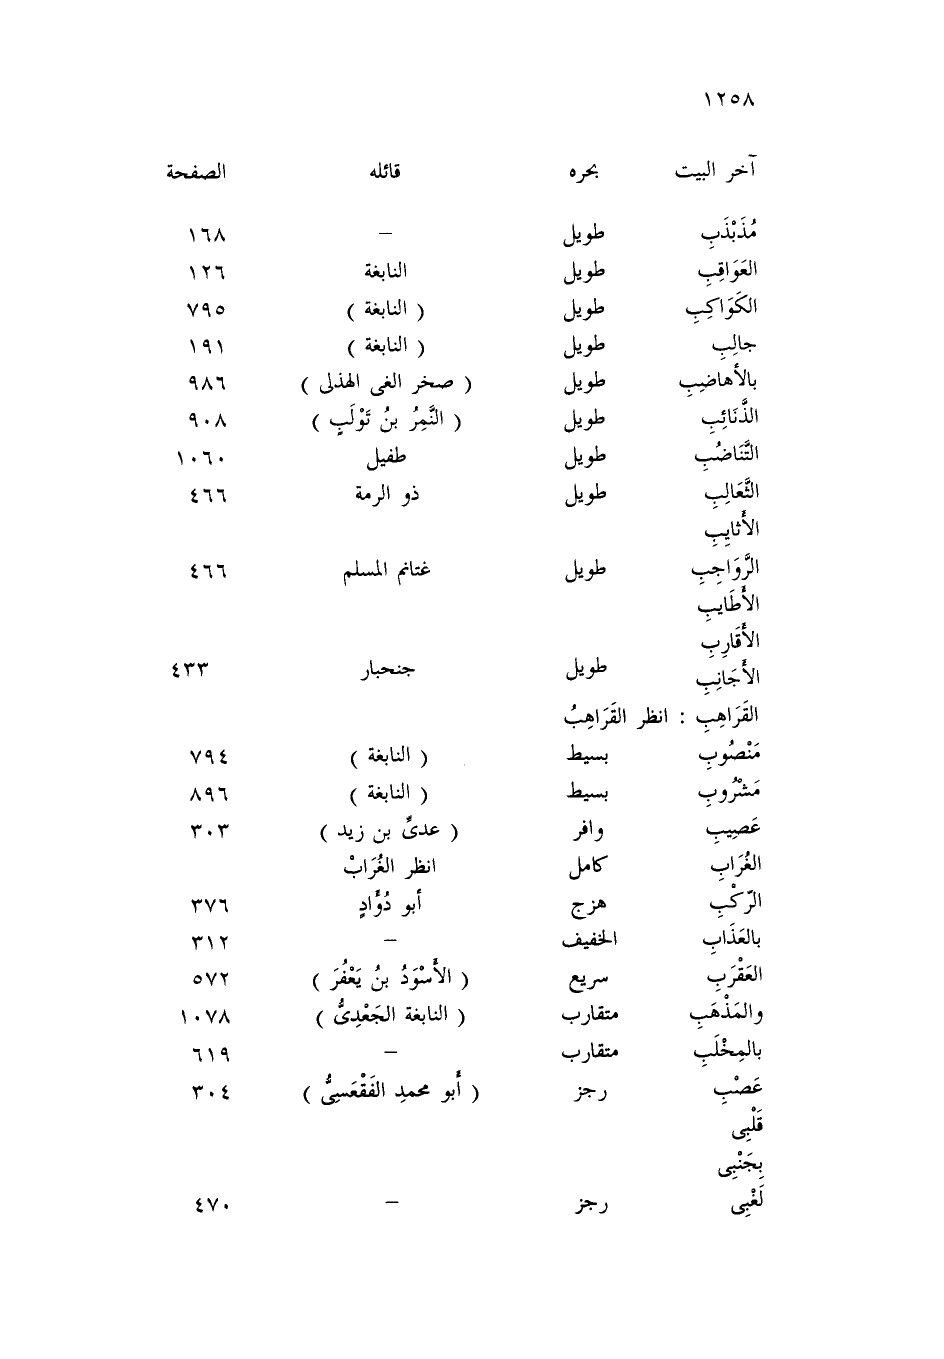 ١٢٥٨
آخر البيت بحره قائله الصفحة
مُذَبْذَبِ طويل – ١٦٨
العَوَاقِبِ طويل النابغة ١٢٦
الكَوَاكِبِ طويل ( النابغة ) ٧٩٥
جالِبِ طويل ( النابغة ) ١٩١
بالأهاضِيبِ طويل ( صخر الغى الهذلى ) ٩٨٦
الذَّنَائِبِ طويل ( النَّمِرُ بنُ تَوْلَبٍ ) ٩٠٨
التَّنَاضُبِ طويل طفيل ١٠٦٠
الثَّعَالِبِ طويل ذو الرمة ٤٦٦
الأَثايِبِ
الرَّوَاجِبِ طويل غثانم المسلم ٤٦٦
الأَطَايبِ
الأَقَارِبِ
الأَجَانِبِ طويل جنحبار ٤٣٣
القَرَاهِبِ : انظر القَرَاهِبُ
مَنْصُوبِ بسيط ( النابغة ) ٧٩٤
مَشْرُوبِ بسيط ( النابغة ) ٨٩٦
عَصِيبِ وافر ( عدىِّ بن زيد ) ٣٠٣
الغُرَابِ كامل انظر الغُرَابْ
الرّكْبِ هزج أبو دُؤَادٍ ٣٧٦
بالعَذَابِ الخفيف – ٣١٢
العَقْرَبِ سريع ( الأَسْوَدُ بنُ يَعْفُرَ ) ٥٧٢
والمَذْهَبِ متقارب ( النابغة الجَعْدِىُّ ) ١٠٧٨
بالمِخْلَبِ متقارب – ٦١٩
عَصْبِ رجز ( أَبو محمدِ الفَقْعَسِىُّ ) ٣٠٤
قَلْبِى
بِجَنْبِى
لَغْبِى رجز – ٤٧٠